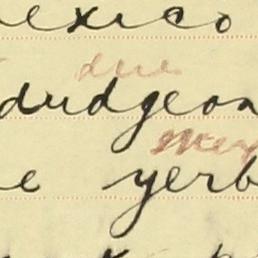 exico
due
dudgeon
mex
e yerb